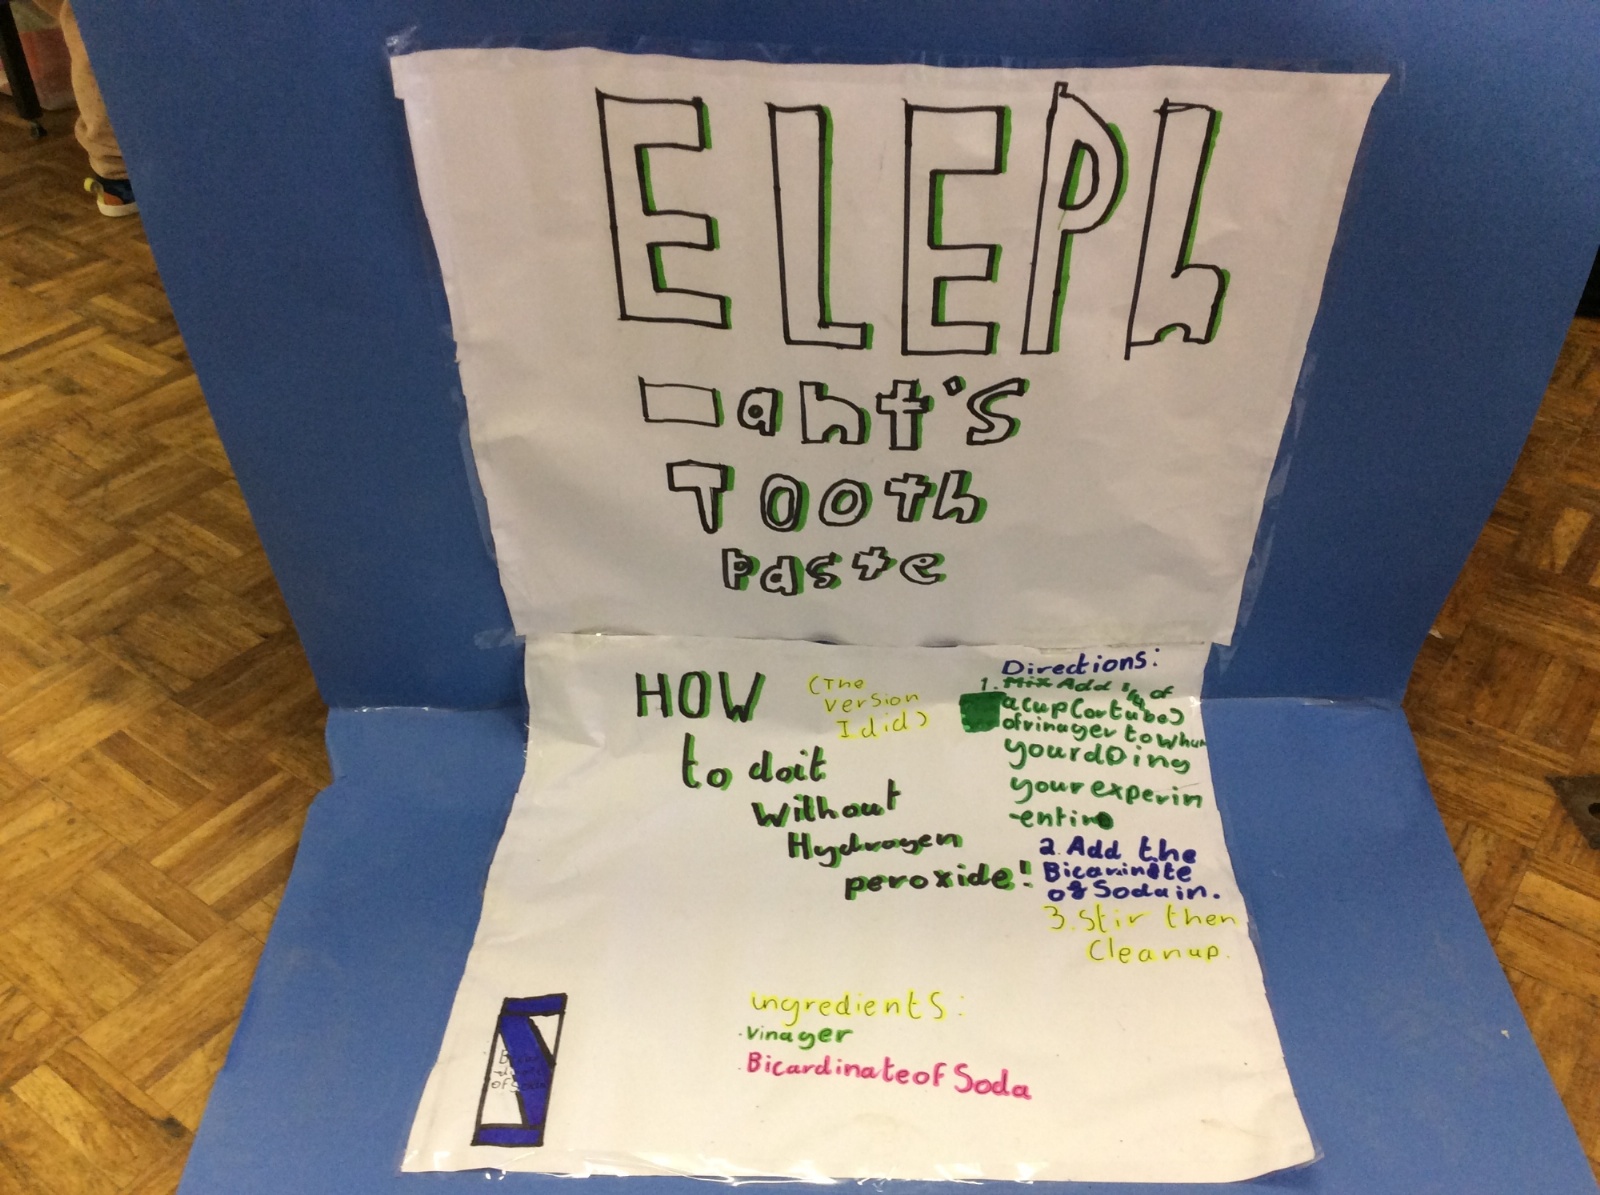 ELEPh
-ant's
Tooth
paste
HOW
to doit
Without
Hydrogen
peroxide!
(The
version
I did)
Directions:
1. Mix Add 1/4 of
a cup (or tube)
of vinager to
your doing
your experim
-ent in
2. Add the
of Soda in.
3. Stir then
Cleanup.
ingredients:
·Vinager
·Bicardinate of Soda
of Soda